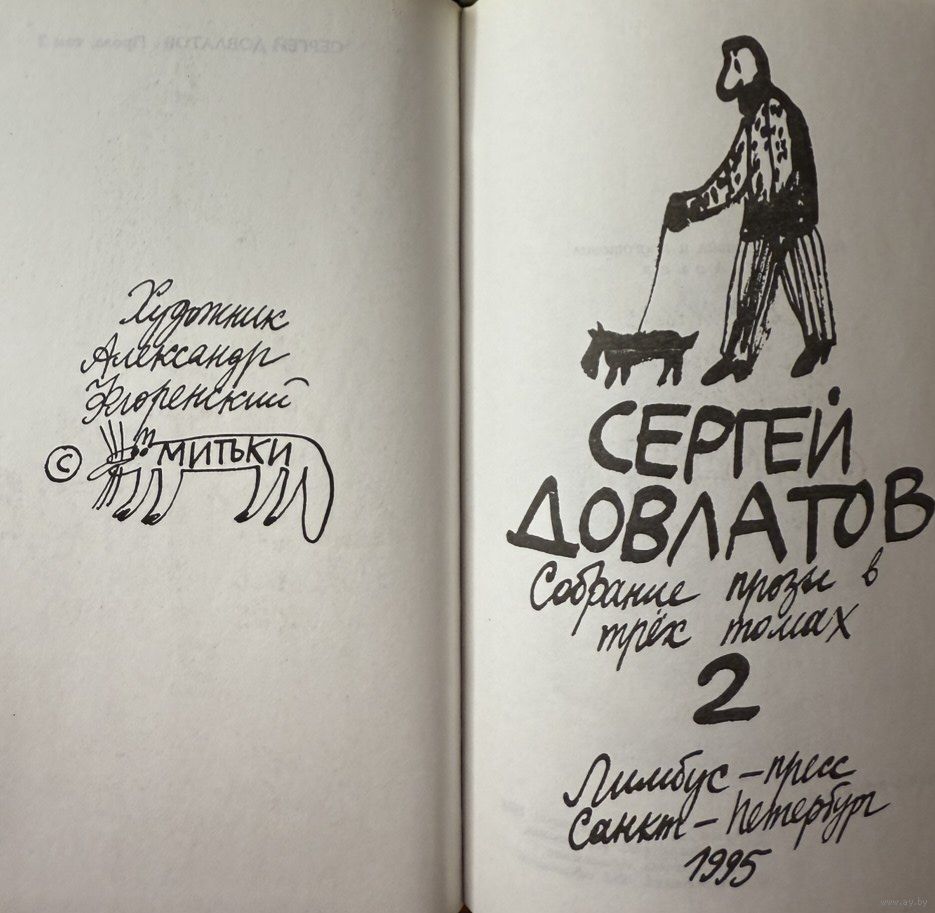 Художник
Александр
Флоренский
© МИТЬКИ
СЕРГЕЙ
ДОВЛАТОВ
Собрание прозы в
трёх томах
2
Лимбус-пресс
Санкт-Петербург
1995
www.ay.by